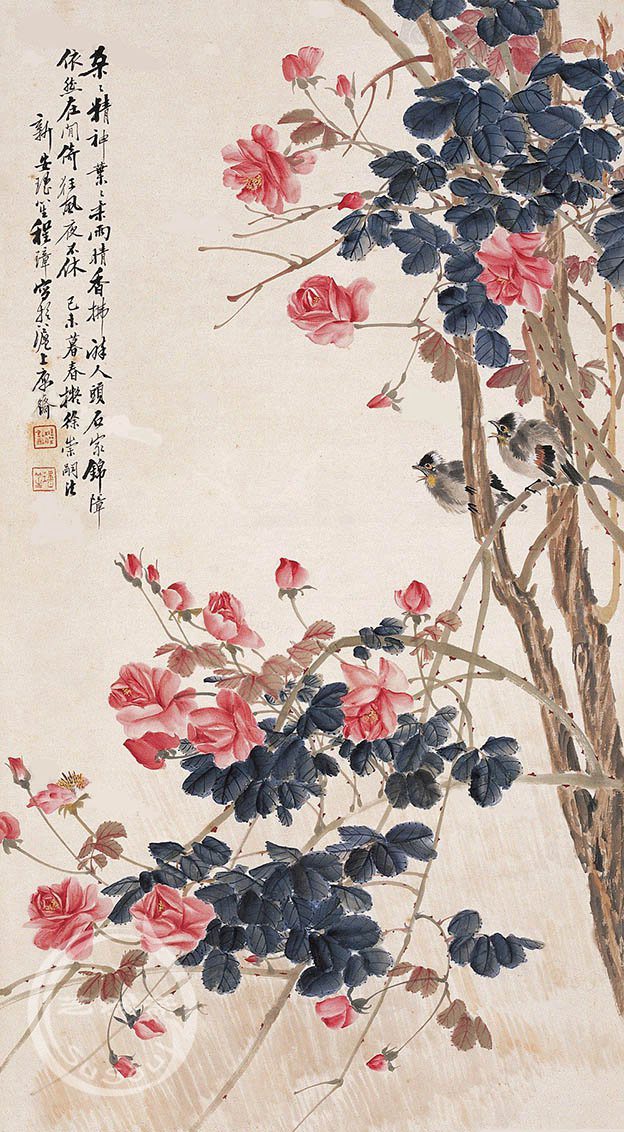 朵〻精神葉〻柔雨晴香拂醉人頭石家錦障
依然在閒倚狂風夜不休 己未暮春擬徐崇嗣法
新安瑤笙程璋寫於滬上